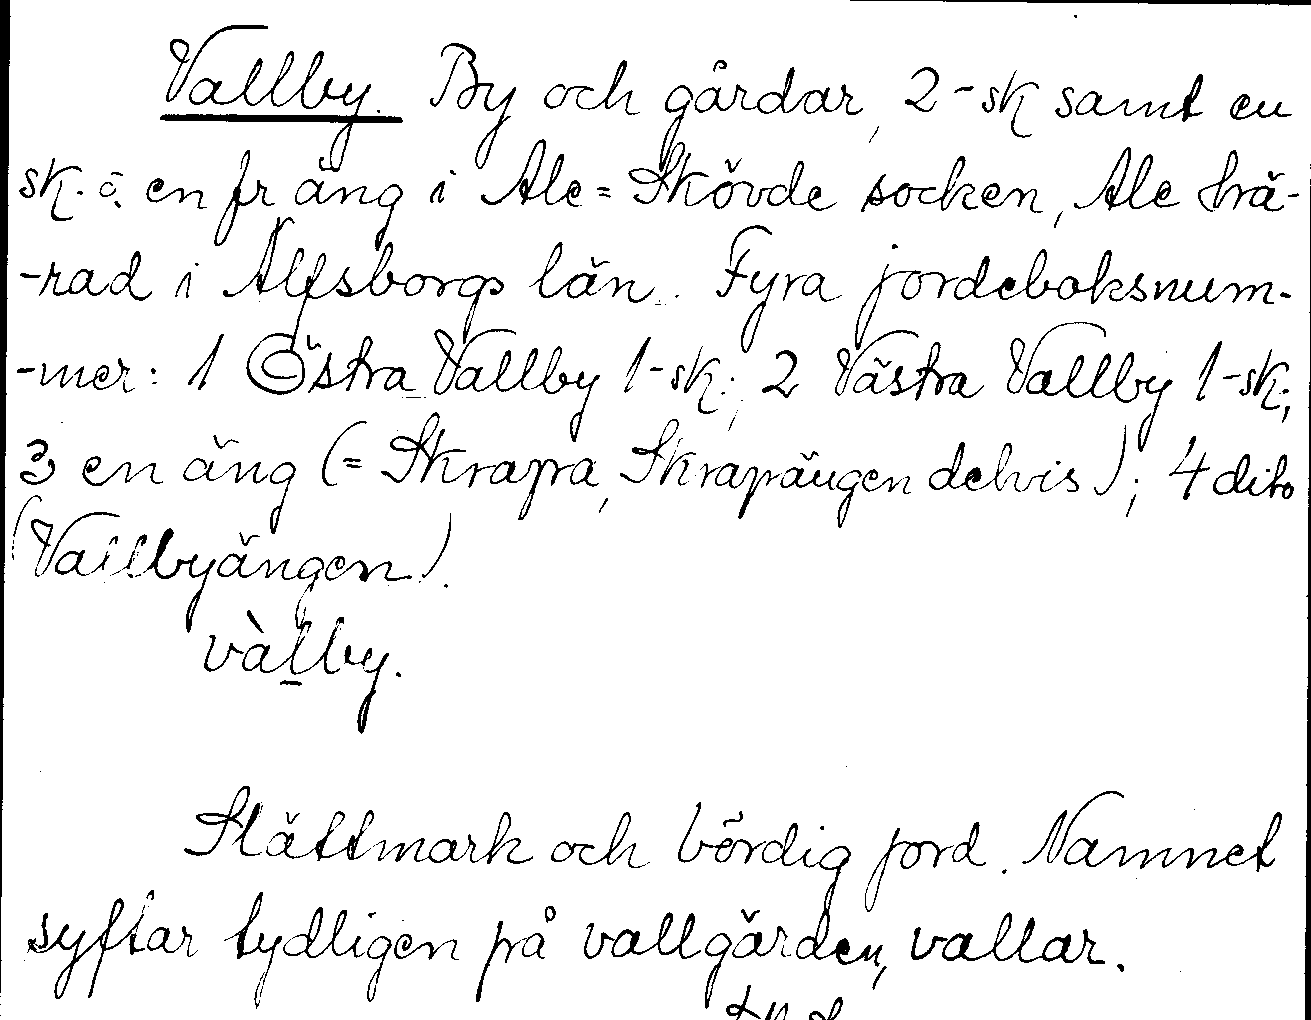 Vallby. By och gårdar, 2-sk samt en
sk. o. en fr äng i Ale=Skövde socken, Ale hä-
-rad i Älfsborgs län. Fyra jordeboksnum-
-mer: 1 Östra Vallby 1-sk.; 2 Västra Vallby 1-sk.;
3 en äng (= Skrapa, Skrapängen delvis); 4 dito
(Vallbyängen).
vàlby.
Slättmark och bördig jord. Namnet
syftar tydligen på vallgärden, vallar.